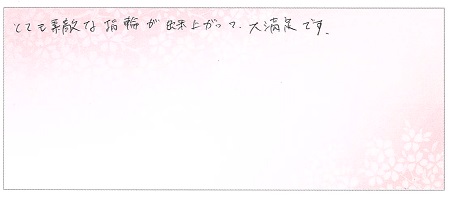 とても素敵な指輪が出来上がって、大満足です。